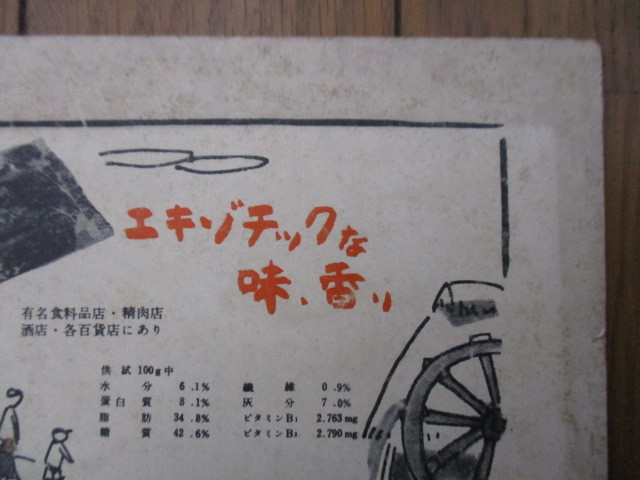 エキゾチックな
味、香り
有名食料品店・精肉店
酒店・各百貨店にあり
供試100g中
水分 6.1% 繊維 0.9%
蛋白質 8.1% 灰分 7.0%
脂肪 34.8% ビタミンB₁ 2.763mg
糖質 42.6% ビタミンB₂ 2.790mg